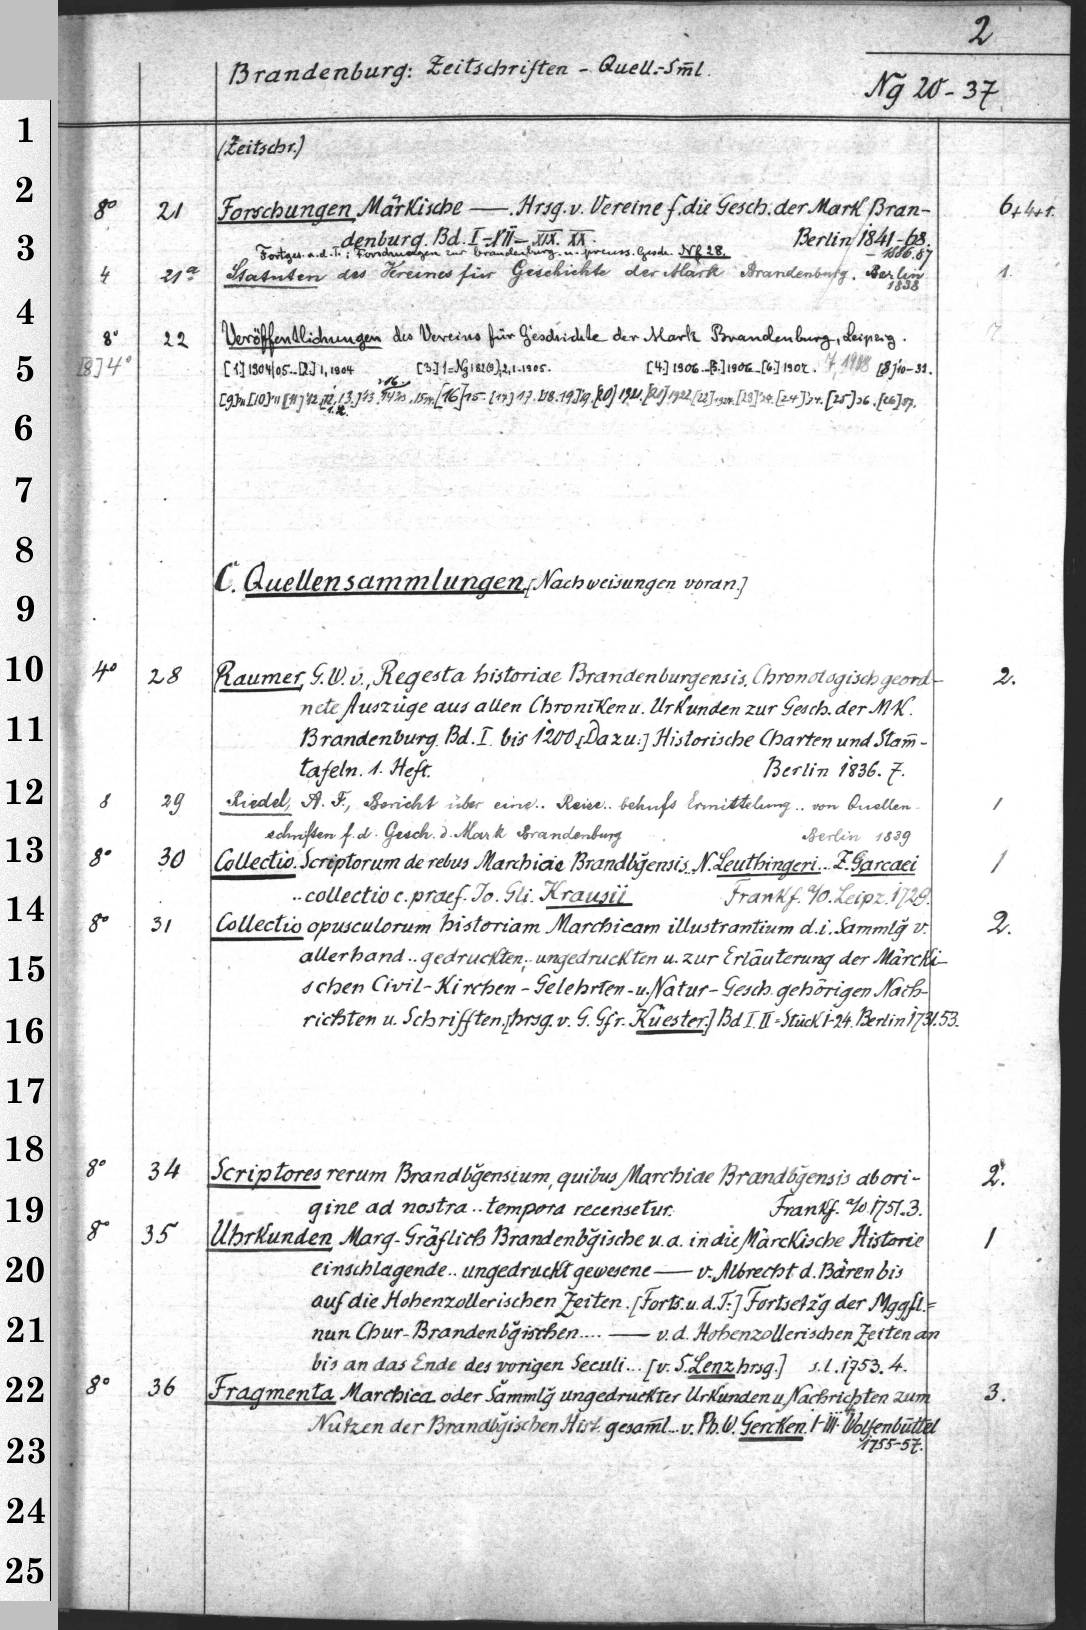 2
Brandenburg: Zeitschriften - Quell.-Sm̄l.
Ng 20-37
1
(Zeitschr.)
2
8° 21 Forschungen, Märkische — . Hrsg. v. Vereine f. die Gesch. der Mark Bran- 6+4+1.
3
denburg. Bd. I-VII- XIX. XX. Berlin 1841-68.
Fortges. u. d. T.: Forschungen zur brandenburg. u. preuss. Gesch. Ng 28. - 1886.87
4 21a Statuten des Vereines für Geschichte der Mark Brandenburg. Berlin 1.
1838
4
8° 22 Veröffentlichungen des Vereins für Geschichte der Mark Brandenburg, Leipzig.
5
[8] 4° [1] 1904/05.. [2.] 1, 1904 [3.] 1=Ng 182(9),2,1.1905. [4.] 1906.. [5.] 1906.. [6.] 1907. 7, 1908 [8] 10-32.
[9] [10] [11] 12 13. [16] 15. [17] 17. [18.19] 19. [20] 1921. [21] 1922 [22] [23] 34. [24] 34. [25] 36. [26] 37.
6
7
8
C. Quellensammlungen. [Nachweisungen voran.]
9
10
4° 28 Raumer, G. W. v., Regesta historiae Brandenburgensis. Chronologisch geord- 2.
nete Auszüge aus allen Chroniken u. Urkunden zur Gesch. der M K.
11
Brandenburg. Bd. I. bis 1200. [Dazu:] Historische Charten und Stam̄-
tafeln. 1. Heft. Berlin 1836. 7.
12
8 29 Riedel, A. F., Bericht über eine.. Reise.. behufs Ermittelung.. von Quellen- 1
schriften f. d. Gesch. d. Mark Brandenburg Berlin 1839
13
8° 30 Collectio Scriptorum de rebus Marchiae Brandbg̃ensis.. N. Leuthingeri... Z. Garcaei 1
.. collectio c. praef. Jo. Gli. Krausii Frankf. a/O. Leipz. 1729.
14
8° 31 Collectio opusculorum historiam Marchicam illustrantium d. i. Sammlg̃ v. 2.
15
allerhand.. gedruckten, ungedruckten u. zur Erläuterung der Märcki-
schen Civil-Kirchen-Gelehrten-u. Natur-Gesch. gehörigen Nach-
16
richten u. Schrifften. [hrsg. v. G. Gfr. Küester.] Bd I. II = Stück 1-24. Berlin 1731.53.
17
18
8° 34 Scriptores rerum Brandbg̃ensium, quibus Marchiae Brandbg̃ensis ab ori- 2.
19
gine ad nostra.. tempora recensetur. Frankf. a/O 1751.3.
8° 35 Uhrkunden Marg-Gräflich Brandenbg̃ische u. a. in die Märckische Historie 1
20
einschlagende.. ungedruckt gewesene — v. Albrecht d. Bären bis
auf die Hohenzollerischen Zeiten. [Forts. u. d. T.:] Fortsetzg̃ der Mggfl.=
21
nun Chur-Brandenbg̃ischen.... — v. d. Hohenzollerischen Zeiten an
bis an das Ende des vorigen Seculi... [v. S. Lenz hrsg.] s. l. 1753. 4.
22
8° 36 Fragmenta Marchica oder Sam̄lg̃ ungedruckter Urkunden u. Nachrichten zum 3.
Nutzen der Brandbg̃ischen Hist. gesam̄l... v. Ph. W. Gercken. I-III. Wolfenbüttel
23
1755-57.
24
25